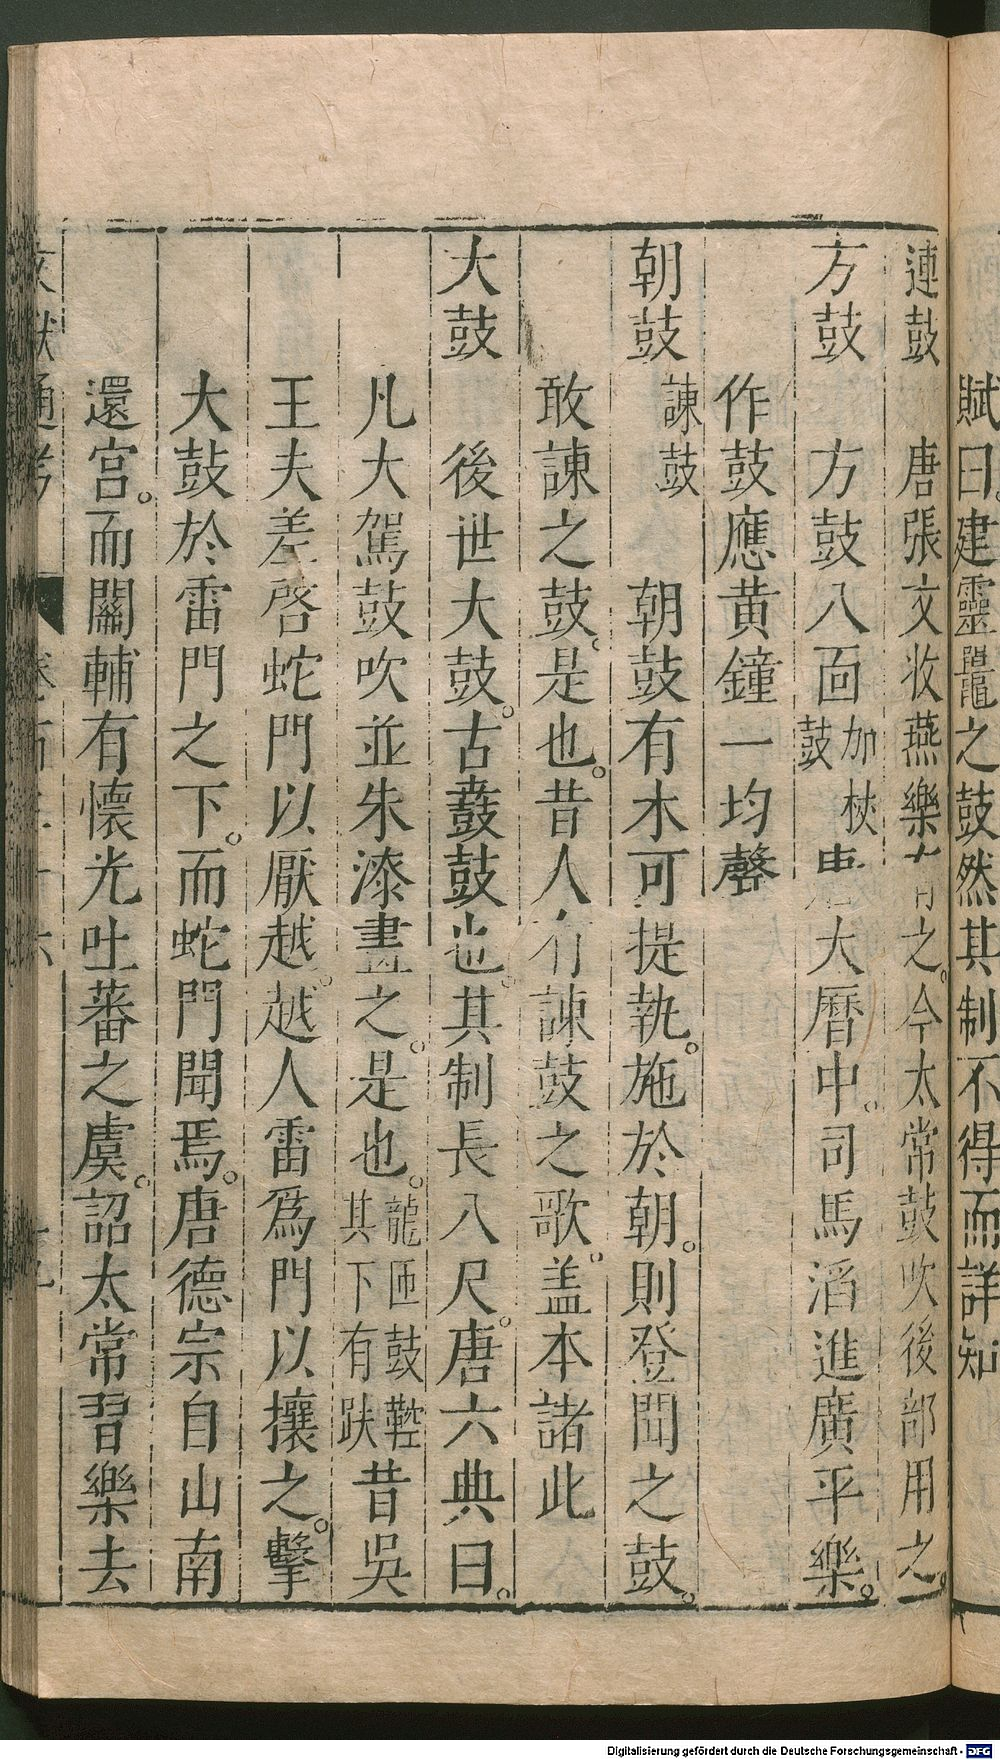 賦曰建靈鼉之鼓然其制不得而詳知
連鼓　唐張文收燕樂有之。今太常鼓吹後部用之。
方鼓　方鼓八面加杖鼓　大曆中。司馬滔進廣平樂。
作鼓應黄鐘一均聲
朝鼓諫鼓　朝鼓有木可提執。施於朝。則登聞之鼓。
敢諫之鼓。是也。昔人有諫鼓之歌。盖本諸此
大鼓　後世大鼓。古鼖鼓也。其制長八尺。唐六典曰。
凡大駕鼓吹並朱漆畫之。是也。龍匝鼓鞚其下有趺昔吳
王夫差啓蛇門以厭越。越人雷爲門以攘之。擊
大鼓於雷門之下。而蛇門聞焉。唐德宗自山南
還宫。而關輔有懷光吐蕃之虞。詔太常習樂去
文獻通考
Digitalisierung gefördert durch die Deutsche Forschungsgemeinschaft - DFG